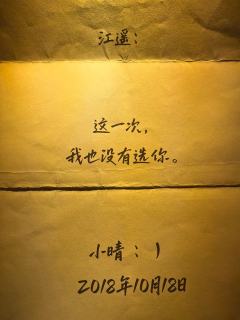 江遥：
这一次，
我也没有选你。
小晴：)
2018年10月18日